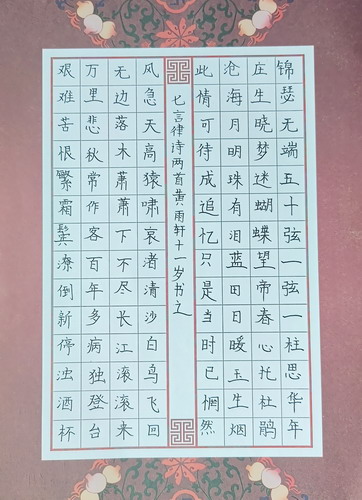 锦瑟无端五十弦一弦一柱思华年
庄生晓梦迷蝴蝶望帝春心托杜鹃
沧海月明珠有泪蓝田日暖玉生烟
此情可待成追忆只是当时已惘然
七言律诗两首黄雨轩十一岁书之
风急天高猿啸哀渚清沙白鸟飞回
无边落木萧萧下不尽长江滚滚来
万里悲秋常作客百年多病独登台
艰难苦恨繁霜鬓潦倒新停浊酒杯